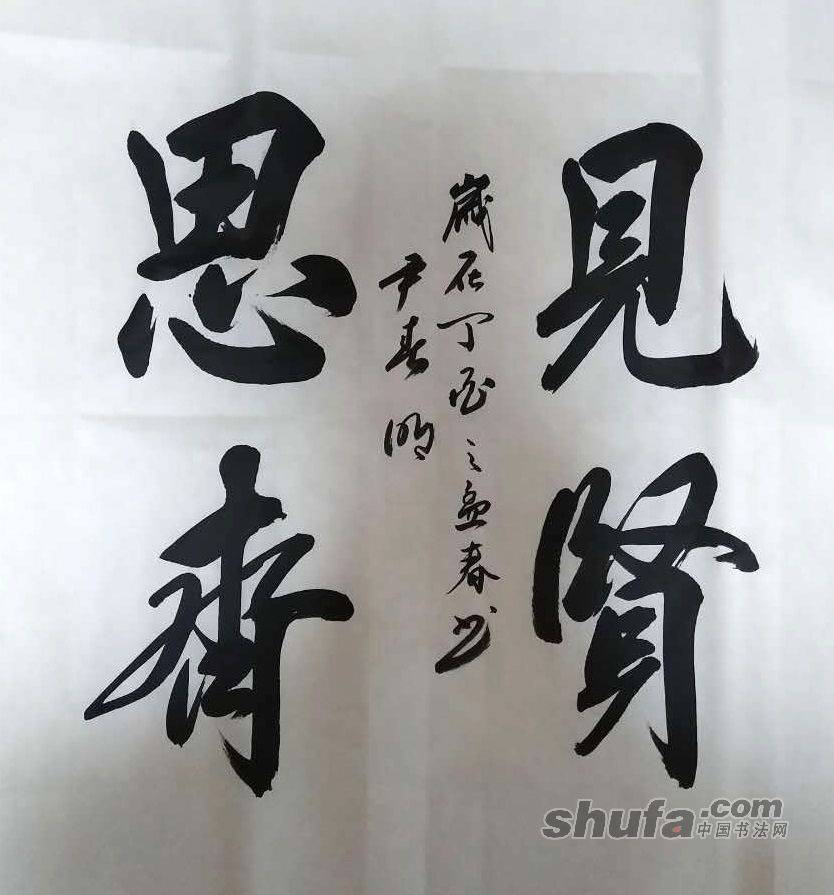 見賢
思齊
歲在丁酉之孟春书
尹春明
shufa.com
中国书法网